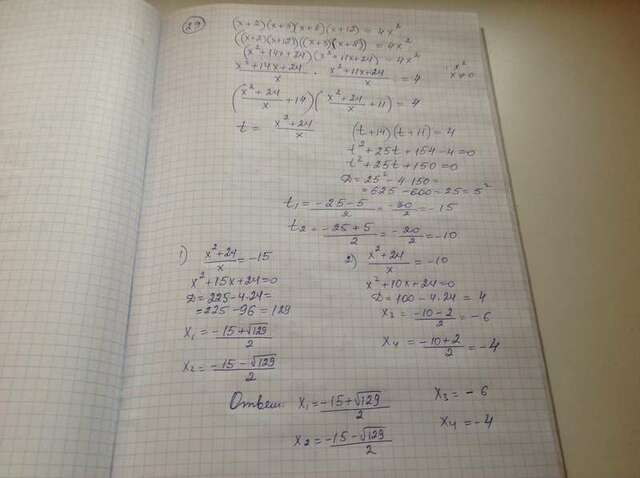 29
(x+2)(x+3)(x+8)(x+12) = 4x²
((x+2)(x+12))((x+3)(x+8)) = 4x²
(x²+14x+24)(x²+11x+24) = 4x²
x²+14x+24/x · x²+11x+24/x = 4 | : x² x≠0
(x²+24/x + 14)(x²+24/x + 11) = 4
t = x²+24/x (t+14)(t+11) = 4
t²+25t+154-4=0
t²+25t+150=0
D = 25² - 4·150 =
= 625-600-25 = 5²
t₁ = -25-5/2 = -30/2 = -15
t₂ = -25+5/2 = -20/2 = -10
1) x²+24/x = -15
x²+15x+24=0
D = 225-4·24 =
= 225-96 = 129
x₁ = -15+√129/2
x₂ = -15-√129/2
2) x²+24/x = -10
x²+10x+24=0
D = 100-4·24 = 4
x₃ = -10-2/2 = -6
x₄ = -10+2/2 = -4
Ответ: x₁ = -15+√129/2 x₃ = -6
x₂ = -15-√129/2 x₄ = -4